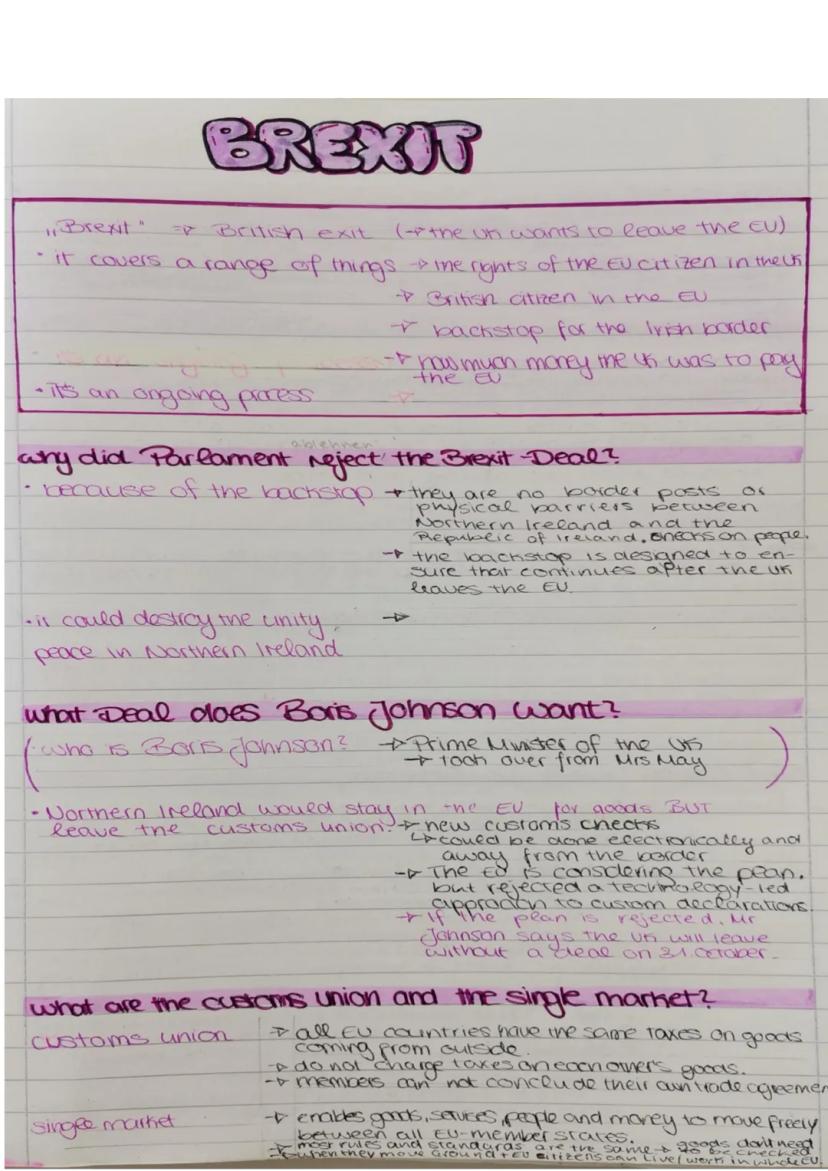 BREXIT
„Brexit" → British exit (→ the UK wants to leave the EU)
• it covers a range of things → the rights of the EU citizen in the UK
→ British citizen in the EU
→ backstop for the Irish border
→ how much money the UK was to pay
the EU
• it's an ongoing process
ablehnen
why did Parlament reject the Brexit-Deal?
• because of the backstop → they are no border posts or
physical barriers between
Northern Ireland and the
Republic of Ireland. checks on people.
→ the backstop is designed to en-
sure that continues after the UK
leaves the EU.
• it could destroy the unity →
peace in Northern Ireland
what Deal does Boris Johnson want?
(• who is Boris Johnson? → Prime Minister of the UK
→ took over from Mrs May )
• Northern Ireland would stay in the EU for goods BUT
leave the customs union: → new customs checks
↳ could be done electronically and
away from the border
→ The EU is considering the plan.
but rejected a technology-led
approach to custom declarations.
→ If the plan is rejected. Mr
Johnson says the UK will leave
without a deal on 31. october.
what are the customs union and the single market?
customs union → all EU countries have the same taxes on goods
coming from outside.
→ do not charge taxes on each other's goods.
→ members can not conclude their own trade agreemen
single market → enables goods, services, people and money to move freely
between all EU-member states.
→ most rules and standards are the same → goods don't need
to be checked
when they move around + EU citizens can live/work in whole EU.